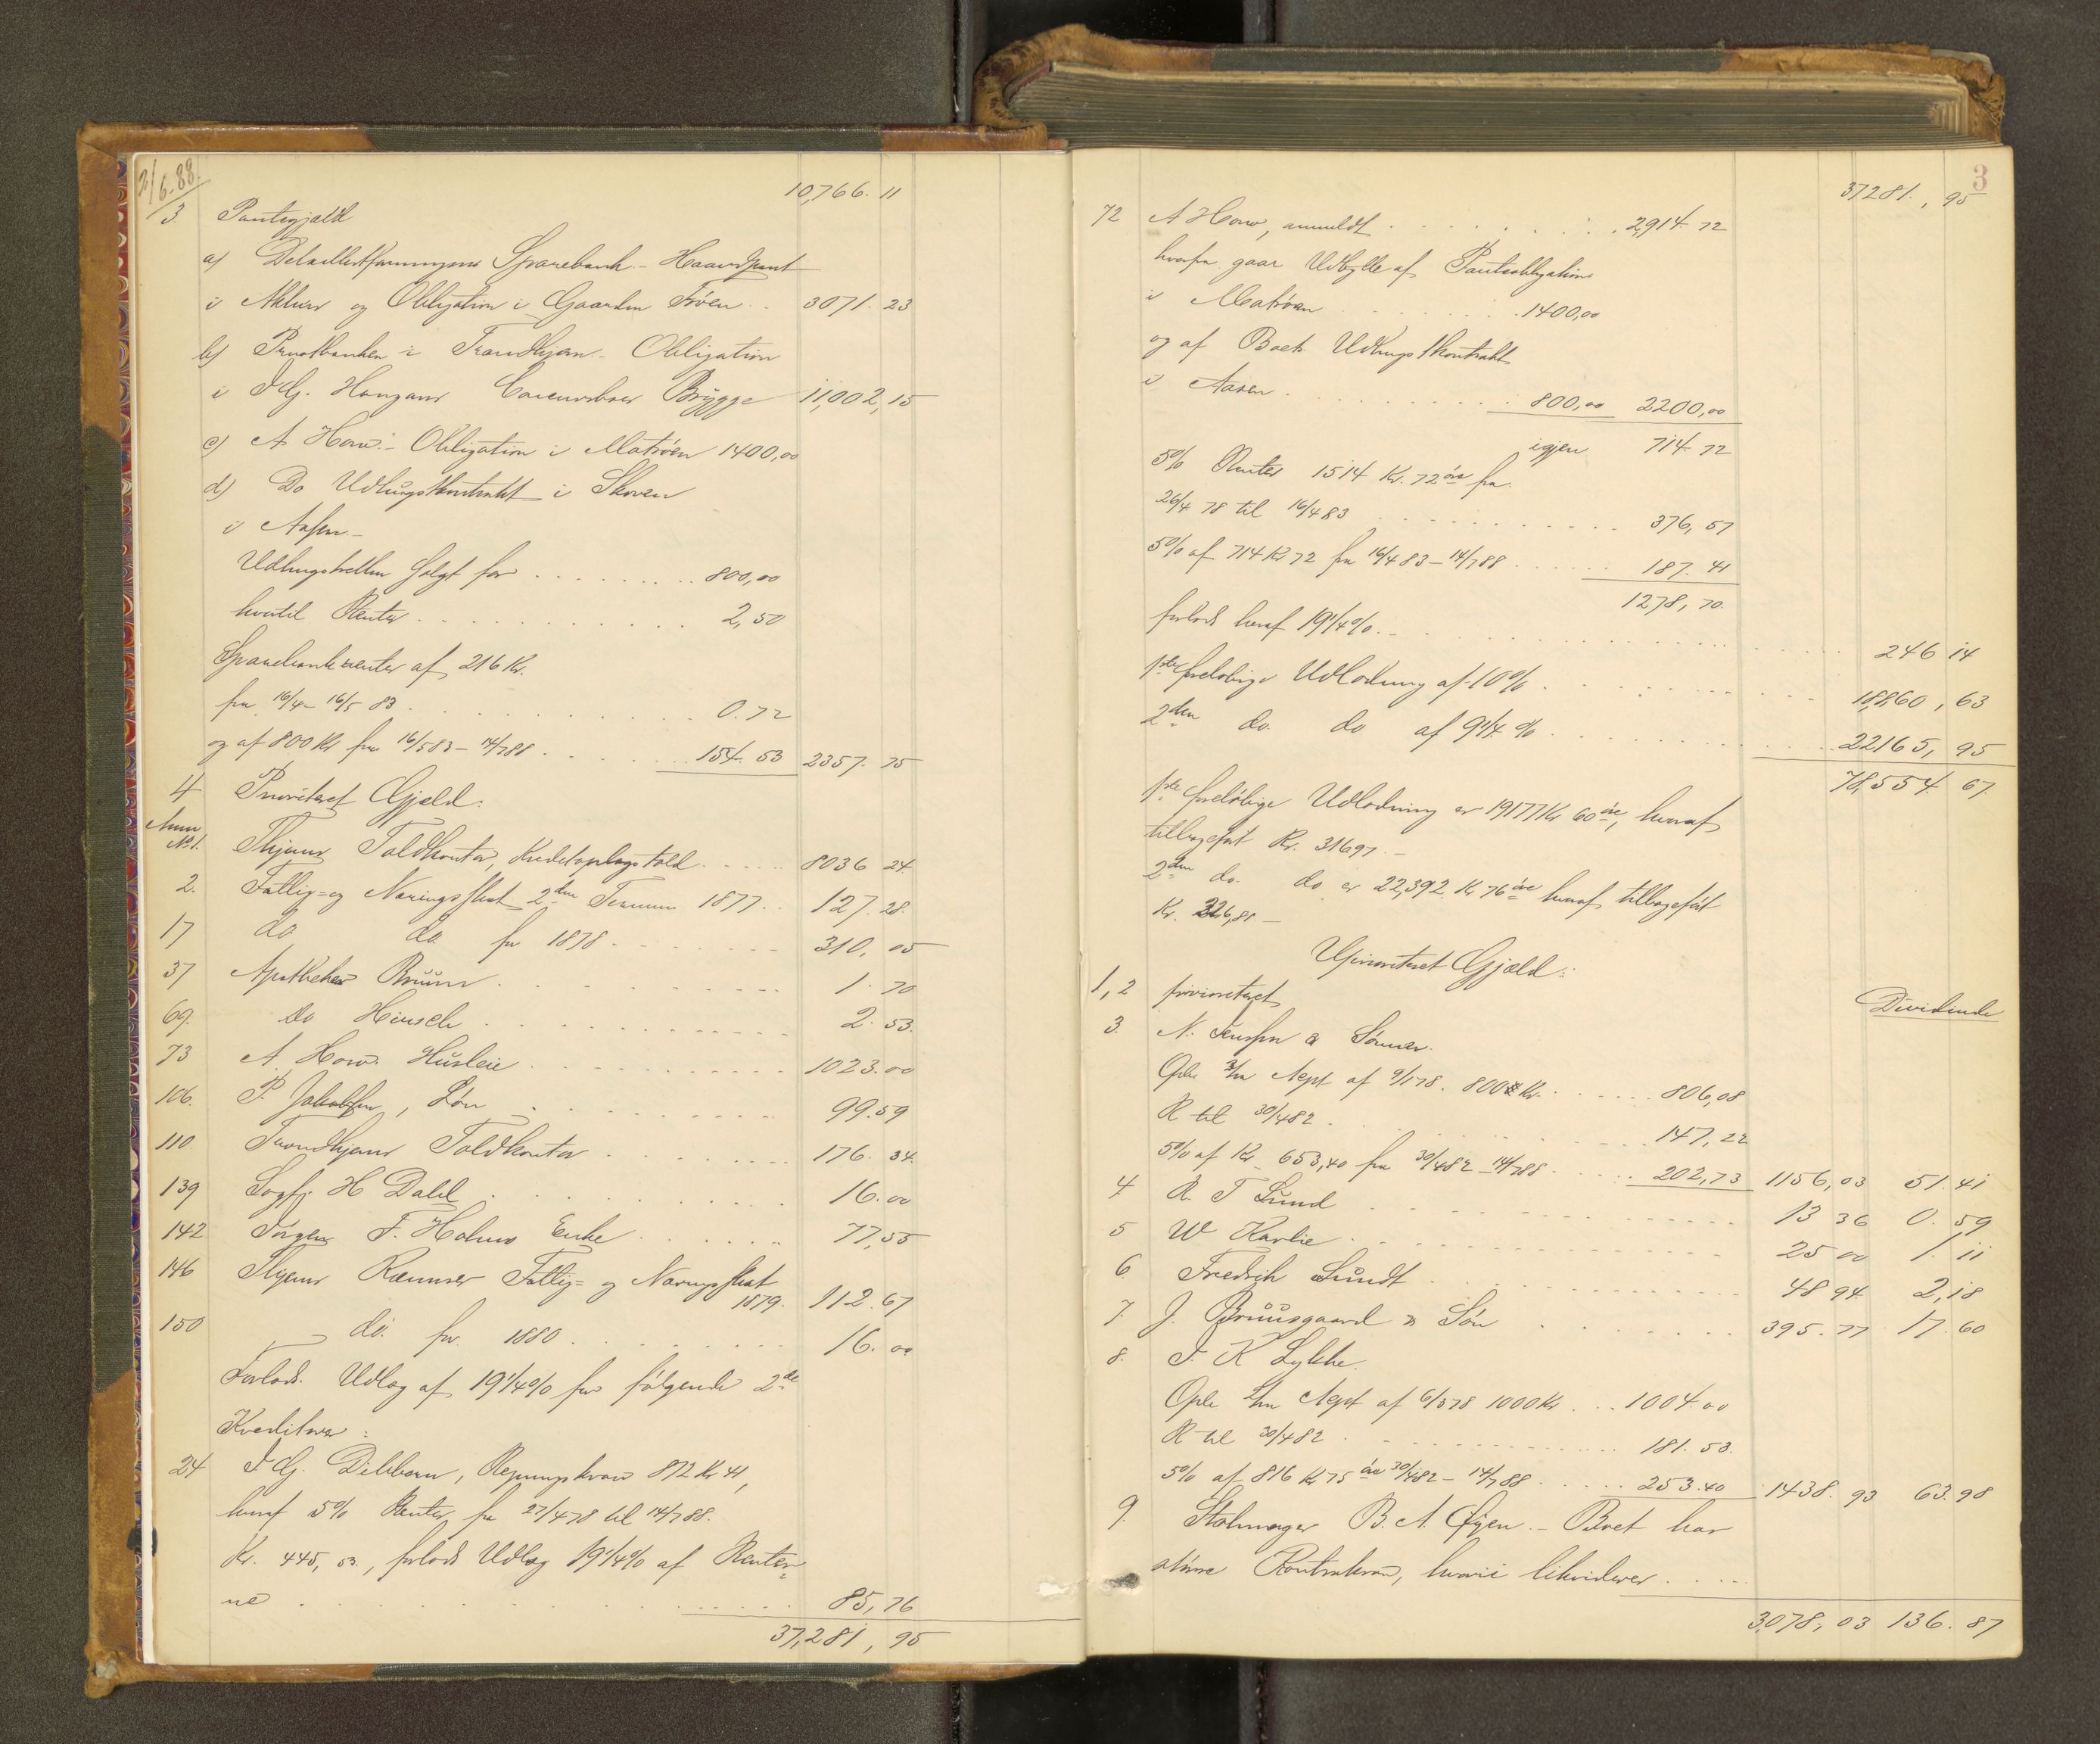 2/6.88
10,766. 11
3. Pantegjæld
a) Detaillistforeningens Sparebank - Haandpant
i Aktier og Obligation i Gaarden Fröen .. 3071. 23
b) Privatbanken i Trondhjem - Obligation
i I G. Brygge 11,002, 15
c) A Hows - Obligation i Matröen 1400,00
d) Do Udhugstkontrakt i Skoven
i Aasen -
Udhugstretten solgt for 800,00
hvortil Renter 2,50
Sparebankrenter af 216 Kr.
fra 16/4 - 16/5 83 0.72
og af 800 Kr fra 16/5 83 - 14/7 88 154. 53 2357. 75
4 Prioriteret Gjæld.
Anm No 1. Thjems Toldkontor, Kreditoplagstold 8036 24.
2. Fattig- og Næringsskat 2den Termin 1877 .. 127. 28.
17 do do for 1878 310, 05
37 Apotheker Bruun 1. 70
69. do Hirsch 2. 53.
73 A. Hows Husleie 1023. 00
106. P. Jakobsen, Lön 99. 59
110 Trondhjems Toldkontor 176. 34.
139 Sagf. H Dahl 16. 00
142 Jörgen F. Holms Enke 77, 55
146 Thjems Kæmner Fattig- og Næringsskat
1879. 112. 67
150 do. for 1880 16. 00
Forlods Udlæg af 19 1/4 % for følgende 2de
Kreditorer :
24 I G. , Regningskrav 872 Kr 41,
heraf 5% Renter fra 27/4 78 til 14/7 88.
Kr. 445, 53., forlods Udlæg 19 1/4 % af Renter=
ne 85, 76
37,281, 95
3
37281. , 95
72 A How, anmeldt 2,914 72
herfra gaar Udbytte af Pantobligation
i Matröen 1400,00
og af Boets Udhugstkontrakt
i Aasen 800,00 2200,00
igjen 714 72
5% Renter 1514 Kr. 72 öre fra
26/4 78 til 16/4 83 376, 57
5% af 714 Kr 72 fra 16/4 83 - 14/7 88 187. 41
1278, 70.
forlods heraf 19 1/4 %. - 246 14
1ste foreløbige Udlodning af 10% 18,860, 63
2den do. do af 9 1/4 % 22165, 95
78,554. 67.
1ste foreløbige Udlodning er 19177 Kr 60 öre, hvoraf
tilbageført Kr. 316 97. -
2den do. do er 22,392 Kr 76 öre hvoraf tilbageført
Kr. 226,81 -
Uprioriteret Gjæld :
Dividende
1, 2 prioriteret
3. N. Jensen & Sønner.
Opl. 3/m Acpt af 9/1 78. 800 Kr. 806,08
R til 30/4 82 147, 22
5% af Kr 653,40 fra 30/4 82 - 14/7 88 202,73 1156, 03 51. 41
4 R. T Lund 13 36 0. 59
5 W Karlie 25 00 1. 11
6 Fredrik Lundt 48 94 2,18
7. J. Bruusgaard & Sön 395. 77 17. 60
8. I. K Lykke.
Opl. Acpt af 6/3 78 1000 Kr 1004. 00
R til 30/4 82 181. 53.
5% af 816 Kr 75 öre 30/4 82 - 14/7 88 253. 40 1438. 93 63. 98
9. Stolmager B. A. Öyen. - Boet har
større Kontrakrav, hvori likviderer
3,078, 03 136. 87